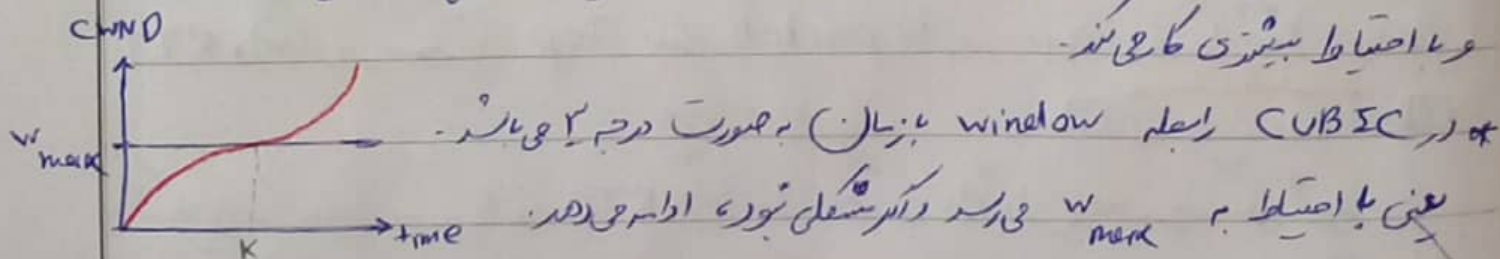 CWND
و با احتیاط بیشتری کار می کند.
* در CUBIC رابطه window با زمان به صورت درجه ۳ می باشد.
W max
یعنی با احتیاط به W max می رسد و اگر مشکلی نبود، ادامه می دهد.
time
K